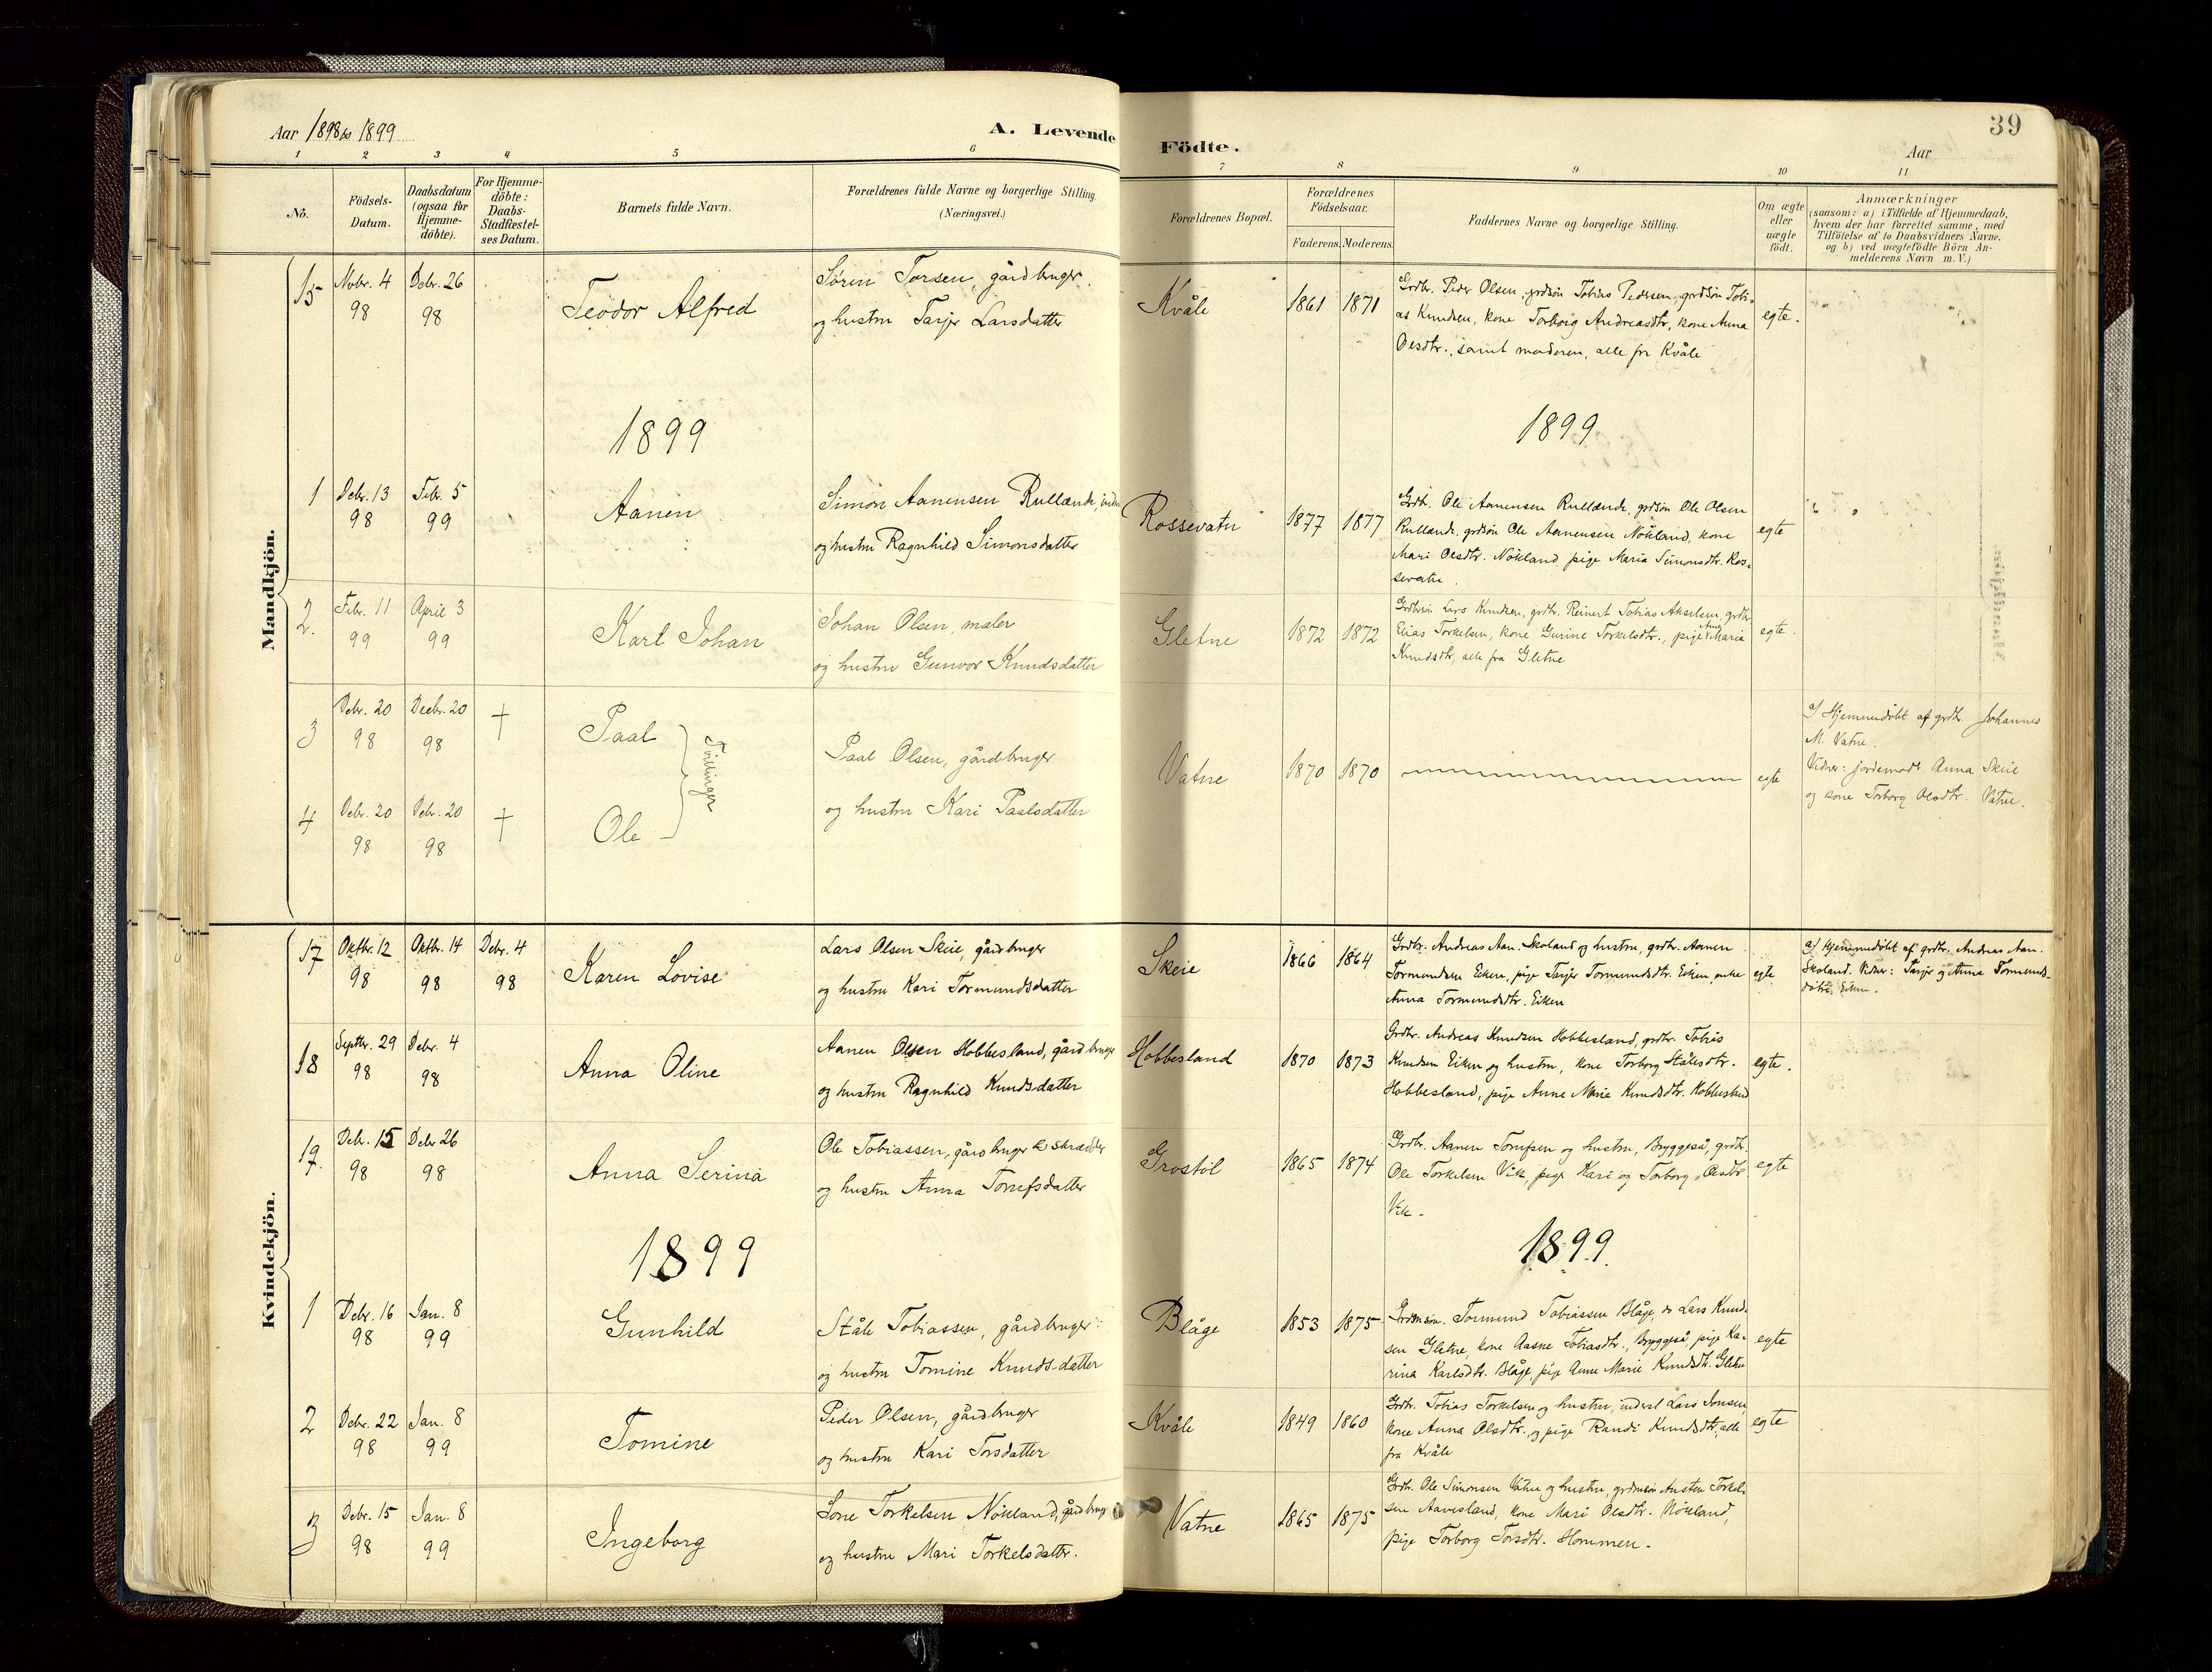 Aar 1898 1899
A. Levende
Födte.
39
Aar
1 2 3 4 5 6 7 8 9 10 11
No.
Födsels-Datum.
Daabsdatum (ogsaa for Hjemme-döbte).
For Hjemme-döbte: Daabs-Stadfæstel-ses Datum.
Barnets fulde Navn.
Forældrenes fulde Navne og borgerlige Stilling. (Næringsvei.)
Forældrenes Bopæl.
Forældrenes Födselsaar.
Faderens. Moderens.
Faddernes Navne og borgerlige Stilling.
Om ægte eller uægte födt.
Anmærkninger
(saasom: a) i Tilfælde af Hjemmedaab,
hvem der har forrettet samme, med
Tilföielse af to Daabsvidners Navne,
og b) ved uægtefödte Börn An-
melderens Navn m. V.)
Mandkjön.
15 Novbr. 4 98 Debr. 26 98
Teodor Alfred
Sören Torsen, gårdbruger
og hustru Tarjer Larsdatter
Kvåle 1861 1871
Grdbr. Peder Olsen, grdsön Tobias Pedersen, grdsön Tobi-
as Knudsen, kone Torborg Andreasdtr., kone Anna
Olesdtr., samt moderen, alle fra Kvåle
egte.
1899
1899
1 Debr. 13 98 Febr. 5 99
Aanen
Simon Aanensen Rullande,
og hustru Ragnhild Simonsdatter
Rossevatn 1877 1877
Grdb. Ole Aanensen Rullande, grdsön Ole Olsen
Rullande, grdsön Ole Aanensen Nökland, kone
Mari Olesdtr. Nökland, pige Maria Simonsdtr. Ros-
sevatn.
egte
2. Febr. 11 99 April 3 99
Karl Johan
Johan Olsen, maler
og hustru Gunvor Knudsdatter
Gletne 1872 1872
Grdbrsön Lars Knudsen, grdbr. Reinert Tobias Akselsen, grdbr.
Elias Torkelsen, kone Gurine Torkelsdtr., pige Anna Maria
Knudsdtr, alle fra Gletne
egte.
3 Debr. 20 98 Decbr. 20 98 †
Paal
Tvillinger
4 Debr. 20 98 Debr. 20 98 †
Ole
Paal Olsen, gårdbruger
og hustru Kari Paalsdatter
Vatne 1870 1870
egte
a) Hjemmedöbt af grdbr. Johannes
M. Vatne.
Vidner: jordemodr. Anna Skeie
og kone Torborg Olsdtr. Vatne.
Kvindekjön.
17 Oktbr. 12 98 Oktbr. 14 98 Debr. 4 98
Karen Lovise
Lars Olsen Skeie, gårdbruger
og hustru Kari Tormundsdatter
Skeie 1866 1864
Grdbr. Andreas Aan. Skoland og hustru, grdbr. Aanen
Tormundsen Eiken, pige Tarjer Tormundsdtr. Eiken, enke
Anna Tormundsdtr. Eiken
egte.
a) Hjemmedöbt af grdbr. Andreas Aan.
Skoland. Vidner: Tarjer og Anna Tormunds-
døtre Eiken.
18 Septbr. 29 98 Debr. 4 98
Anna Oline
Aanen Olsen Hobbesland, gårdbruger
og hustru Ragnhild Knudsdatter
Hobbesland 1870 1873
Grdbr. Andreas Knudsen Hobbesland, grdbr. Tobias
Knudsen Eiken og hustru, kone Torborg Ståliesdtr.
Hobbesland, pige Anne Marie Knudsdtr. Hobbesland
egte.
19. Debr. 15 98 Debr 26 98
Anna Serina
Ole Tobiassen, gårdbruger & skrædder
og hustru Anna Torufsdatter
Grostöl 1865 1874
Grdbr. Aanen Torufsen og hustru, Bryggeså, grdbr.
Ole Torkelsen Vik, pige Kari og Torborg Olesdtr
Vik.
egte
1899
1899.
1 Debr. 16 98 Jan. 8 99
Gunhild
Ståle Tobiassen, gårdbruger
og hustru Tomine Knudsdatter
Blåge 1853 1875
Grdmsön. Tormund Tobiassen Blåge, do Lars Knud-
sen Gletne, kone Aasne Tobiasdtr., Bryggeså, pige Ka-
rina Karlsdtr. Blåge, pige Anne Marie Knudsdtr. Gletne
egte
2 Debr. 22 98 Jan. 8 99
Tomine
Peder Olsen, gårdbruger
og hustru Kari Torsdatter
Kvåle 1849 1860
Grdbr. Tobias Torkelsen og hustru, inderst Lars Jonsen,
kone Anna Olsdtr. og pige Randi Knudsdtr., alle
fra Kvåle
egte
3 Debr. 15 98 Jan. 8 99
Ingeborg
Lone Torkelsen Nökland, gårdbrug
og hustru Mari Torkelsdatter.
Vatne 1865 1875
Grdbr. Ole Simonsen Vatne og hustru, grdmsön Austen Torkel-
sen Aavesland, kone Mari Olesdtr. Nökland,
pige Torborg Torsdtr. Hommen.